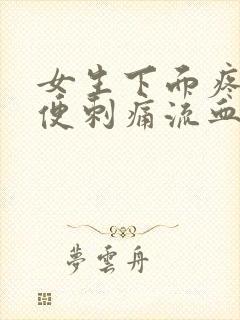 女生下面疼
便刺痛流血
夢雲舟